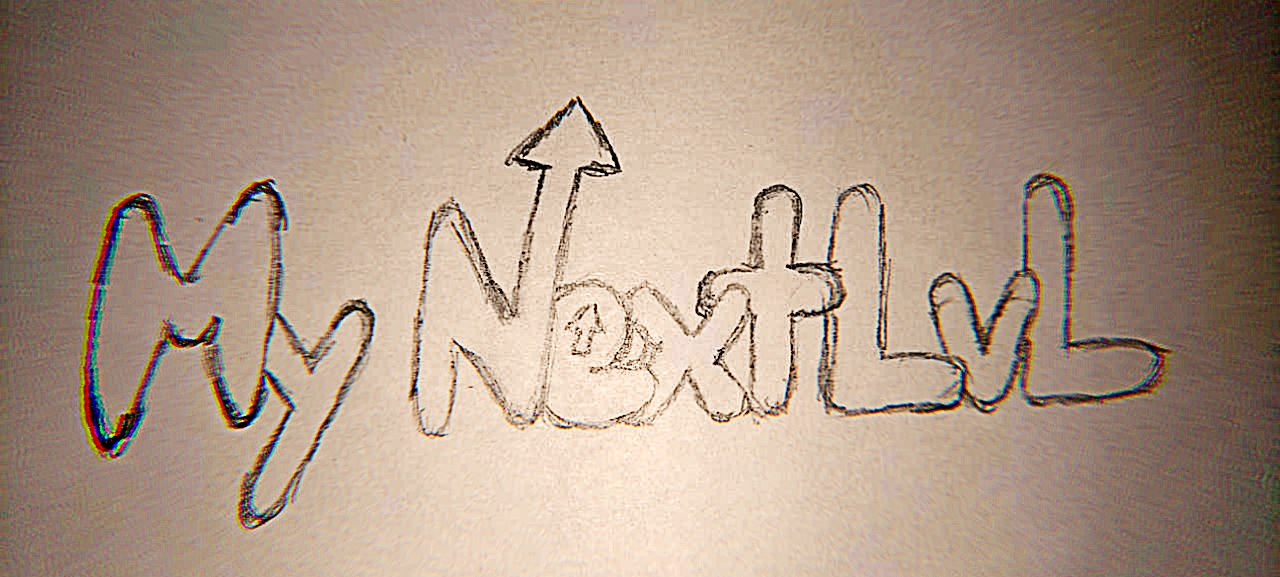 My NextLvL